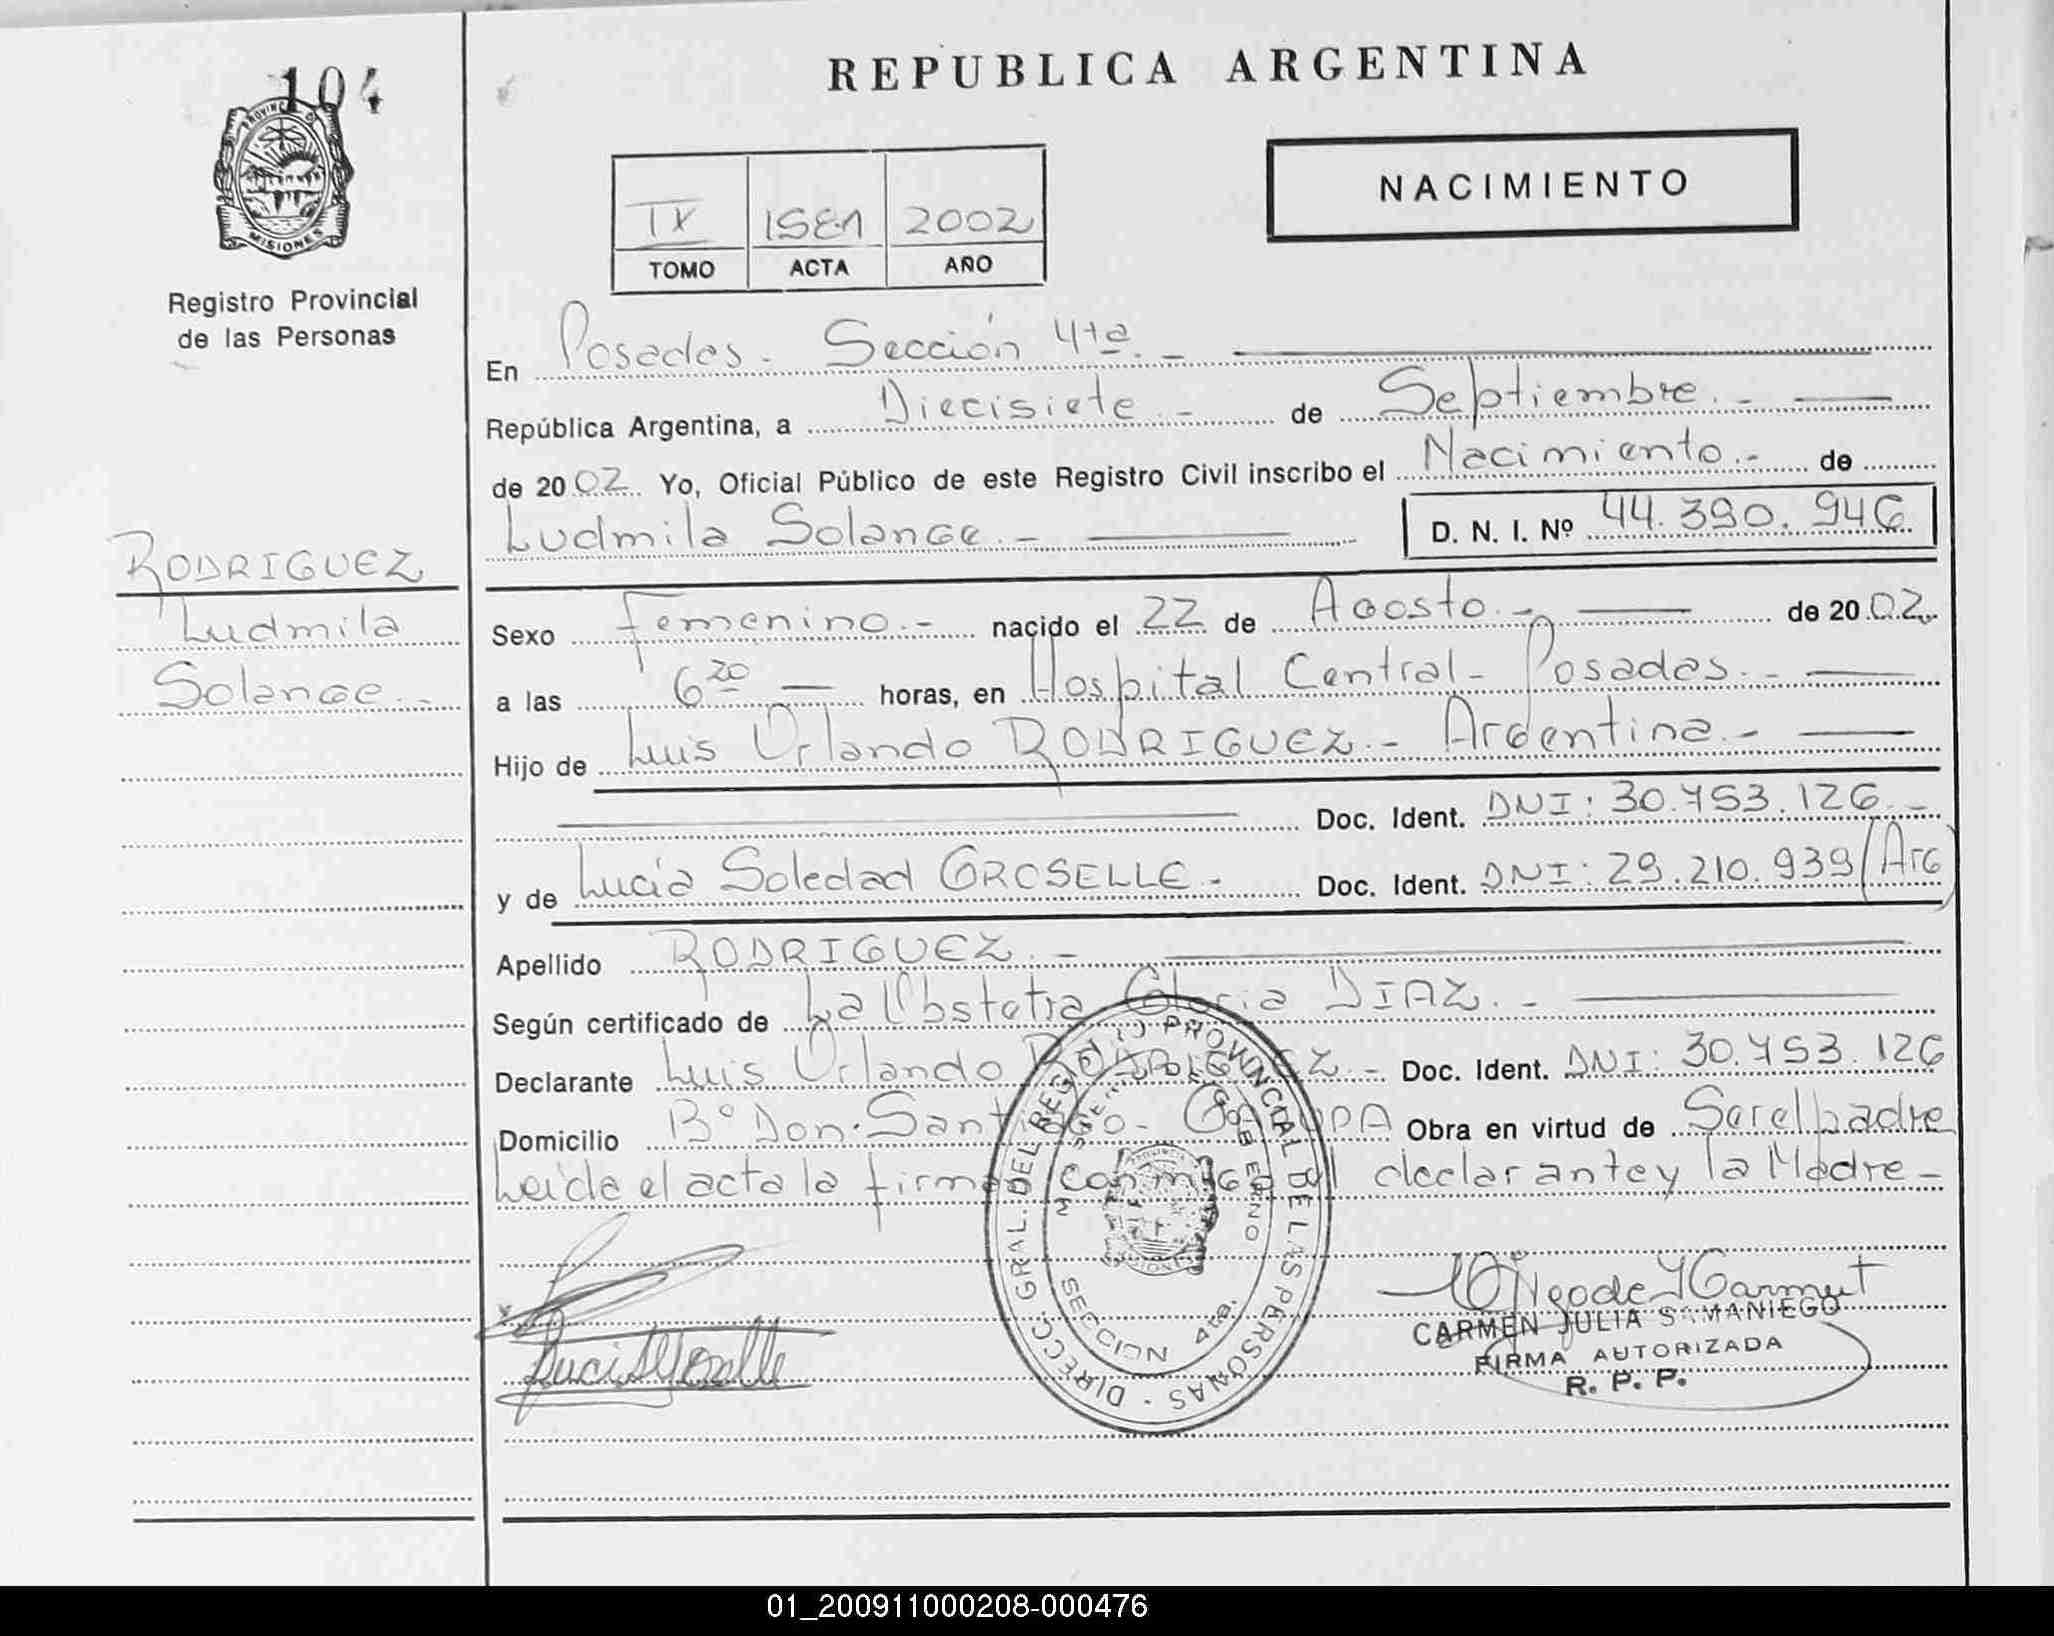 104
PROVINCIA DE
MISIONES
Registro Provincial
de las Personas
RODRIGUEZ
Ludmila
Solange.-
REPUBLICA ARGENTINA
NACIMIENTO
IX 2002
TOMO ACTA AÑO
En Posadas. Sección 4ta.-
República Argentina, a Diecisiete.- de Septiembre.-
de 2002 Yo, Oficial Público de este Registro Civil inscribo el Nacimiento.- de
Ludmila Solange.- D. N. I. Nº 44.390.946
Sexo Femenino.- nacido el 22 de Agosto.- de 2002.
a las 6 20 horas, en Hospital Central- Posadas.-
Hijo de Luis Orlando RODRIGUEZ.- Argentina.-
Doc. Ident. DNI: 30.453.126.-
y de Lucia Soledad GROSELLE.- Doc. Ident. DNI: 29.210.939 (Arg
Apellido RODRIGUEZ.-
Según certificado de La Obstetra Gloria DIAZ.-
Declarante Luis Orlando RODRIGUEZ.- Doc. Ident. DNI: 30.453.126
Domicilio Bº Don. Santiago- GARUPA Obra en virtud de Ser el padre
Leida el acta la firman conmigo el declarante y la Madre-
DIRECC. GRAL. DEL REGISTRO PROVINCIAL DE LAS PERSONAS
SECCION 4ta.
CARMEN JULIA SAMANIEGO
FIRMA AUTORIZADA
R. P. P.
01_200911000208-000476